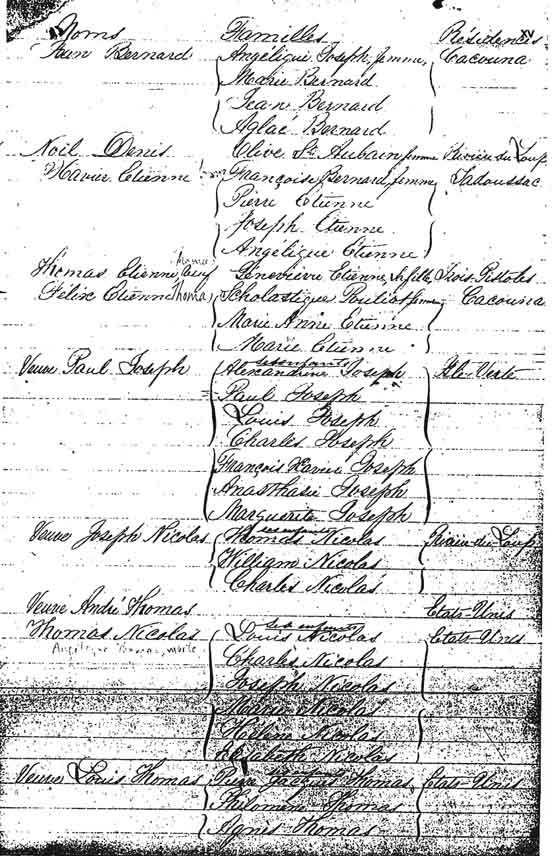 Noms Familles Résidences
Jean Bernard Angélique Joseph, femme, Cacouna
Marie Bernard
Jean Bernard
Aglaé Bernard
Noël Denis Olive St Aubin femme Rivière du Loup
Xavier Etienne Françoise Bernard, femme, Tadoussac
Pierre Etienne
Joseph Etienne
Angélique Etienne
Thomas Etienne, Geneviève Etienne, sa fille, Trois-Pistoles
Félix Etienne Thomas Scholastique Pouliot femme, Cacouna
Marie Anne Etienne
Marie Etienne
ses enfants
Veuve Paul Joseph Alexandrine Joseph Ile-Verte
Paul Joseph
Louis Joseph
Charles Joseph
François Xavier Joseph
Anasthasie Joseph
Marguerite Joseph
ses enfants
Veuve Joseph Nicolas Thomas Nicolas Rivière-du-Loup
William Nicolas
Charles Nicolas
Veuve André Thomas Etats-Unis
ses enfants
Thomas Nicolas Louis Nicolas Etats-Unis
Angélique Thomas, morte Charles Nicolas
Joseph Nicolas
Marie Nicolas
Hélène Nicolas
Elisabeth Nicolas
Veuve Louis Thomas Pierre Thomas, Etats-Unis
Philomène Thomas
Agnès Thomas